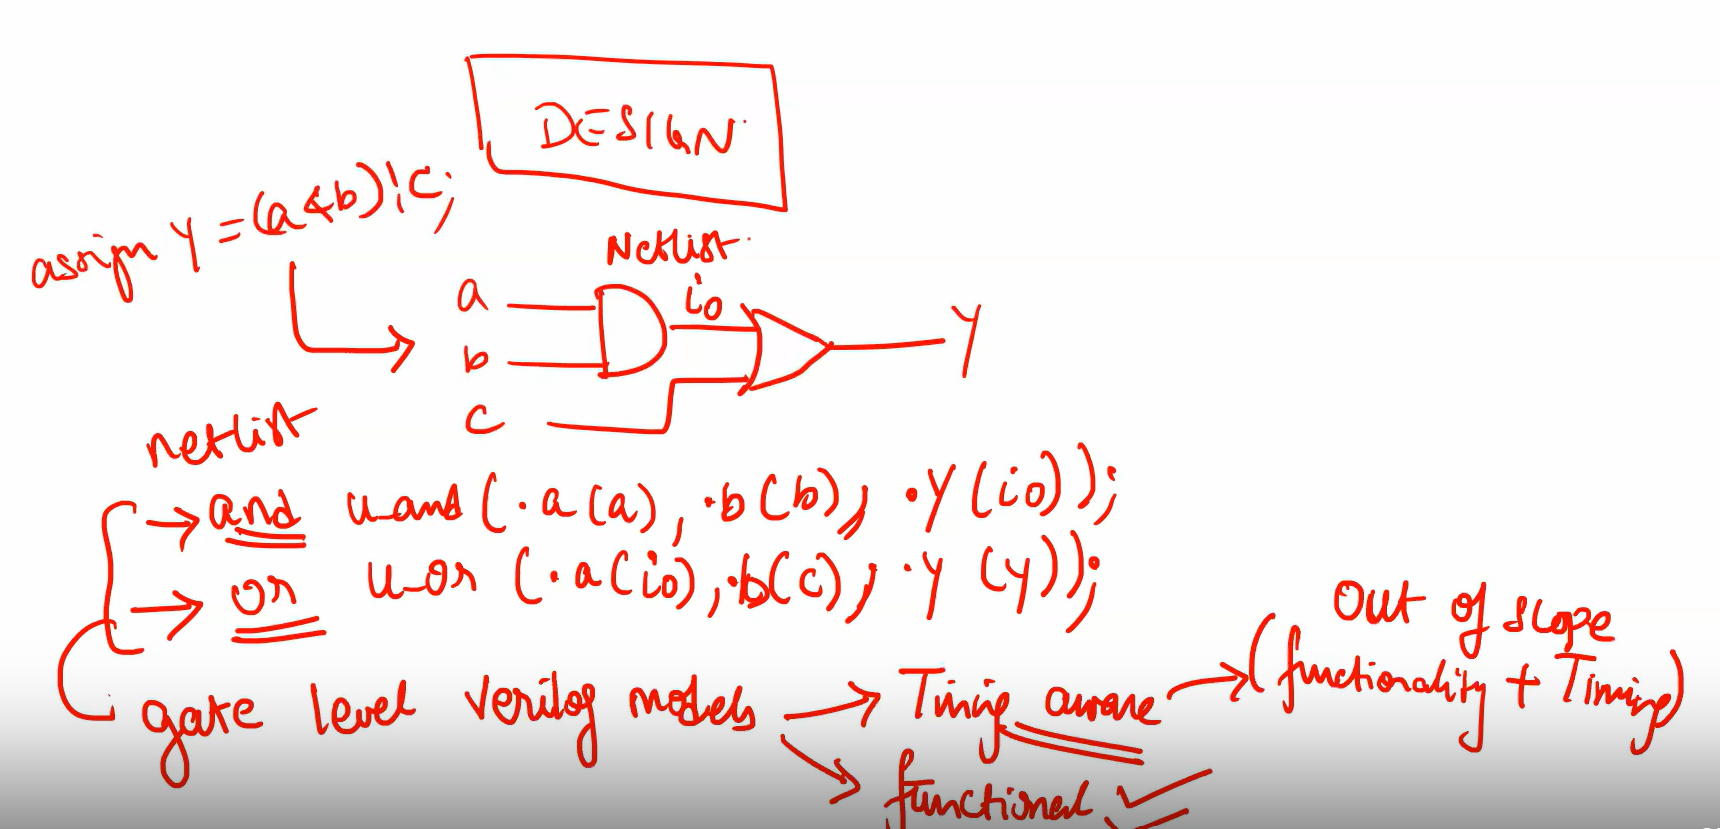 DESIGN
assign Y = (a & b) | C;
Netlist
a
i0
b
Y
C
netlist
→ and u_and (.a(a), .b(b), .Y(i0));
→ or u_or (.a(i0), .b(c), .Y(y));
Out of scope
gate level verilog models → Timing aware → (functionality + Timing)
→ functional ✓